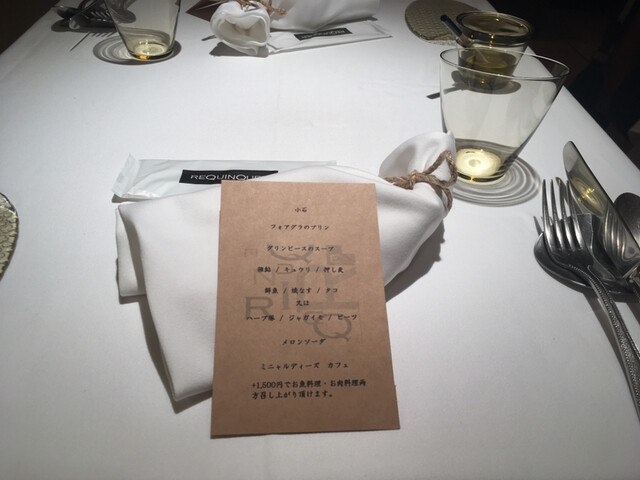 REQUINQUE
小石
フォアグラのプリン
グリンピースのスープ
雑鮎 / キュウリ / 押し麦
鮮魚 / 焼なす / タコ
又は
ハーブ豚 / ジャガイモ / ビーツ
メロンソーダ
ミニャルディーズ カフェ
+1,500円でお魚料理・お肉料理両
方召し上がり頂けます。